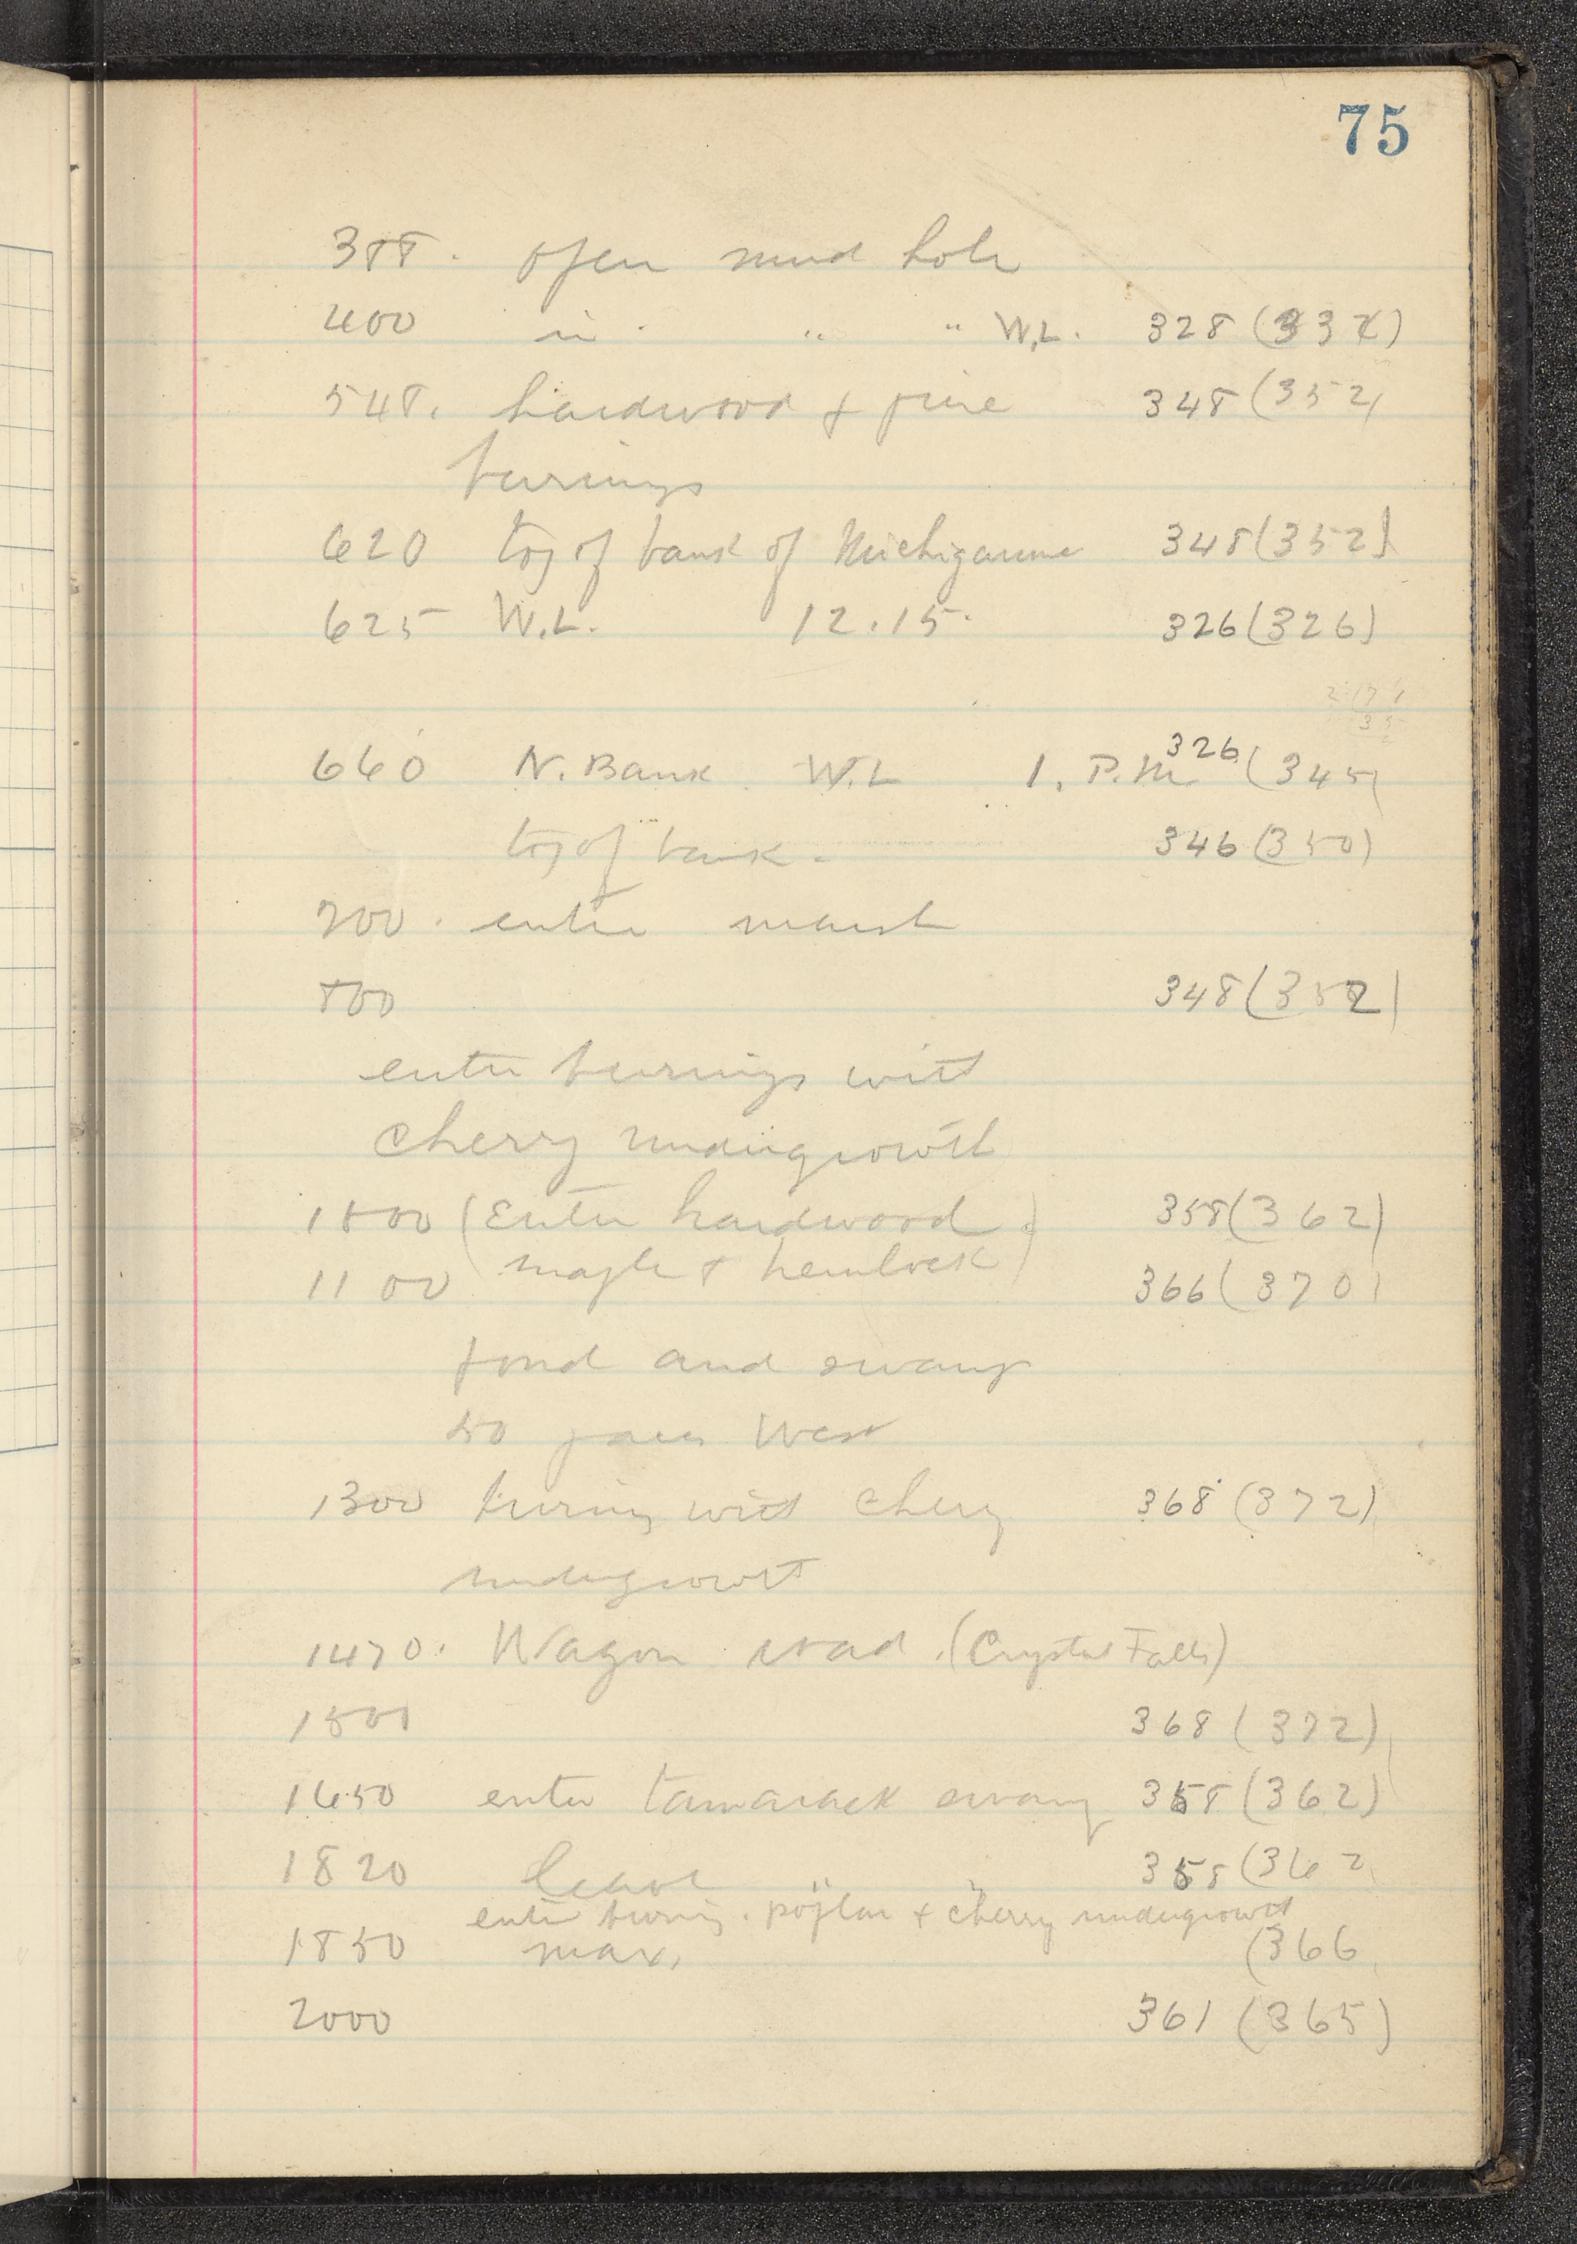 75
388. open mud hole
400 in " " W.L. 328 (332)
548. hardwood & pine 348 (352)
burnings
620 top of bank of Michigamme 348 (352)
625 W.L. 12.15. 326 (326)
660 N. Bank W.L 1. P.M 326 (345)
top of bank. 346 (350)
700. enter marsh
800 348 (352)
enter burnings with
cherry undergrowth
1000 (Enter hardwood. 358 (362)
maple & hemlock)
1100 366 (370)
pond and swamp
50 paces West
1300 burning with cherry 368 (372)
undergrowth
1470. Wagon road. (Crystal Falls)
1500 368 (372)
1650 enter tamarack swamp 358 (362)
1820 leave 358 (362
enter burning. poplar & cherry undergrowth
1850 max. (366
2000 361 (365)